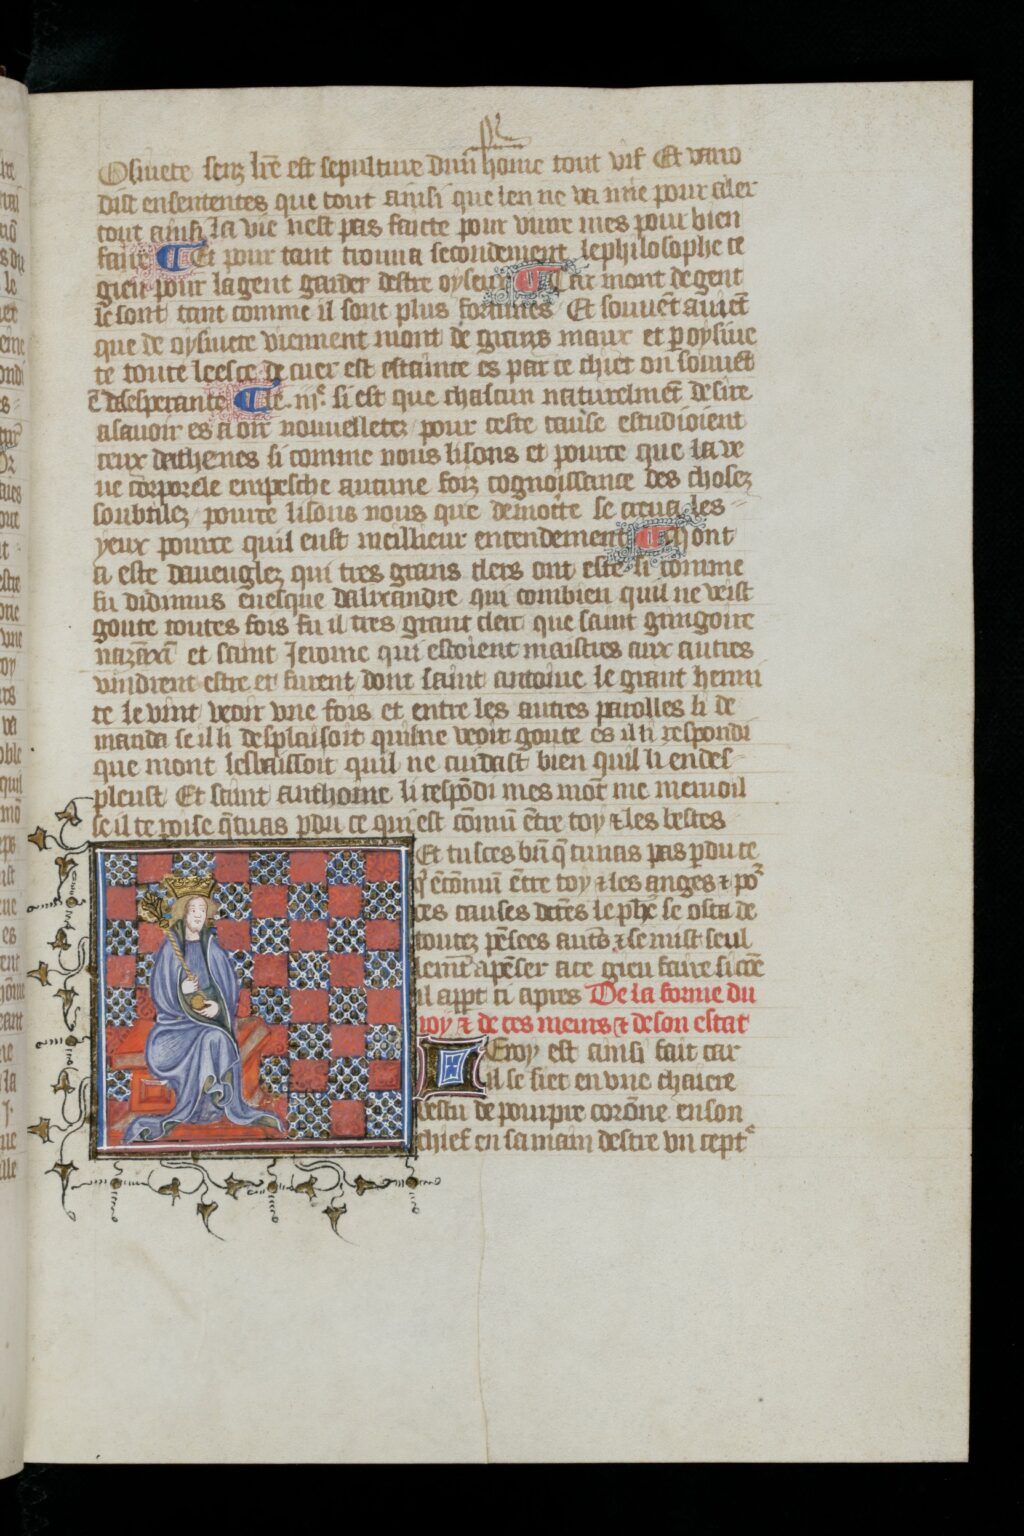 Osivete senz lr̃e est sepulture dun home tout vif Et varo
dist en sentences que tout ainsi que len ne va mie pour aler
tout ainsi la vie nest pas faicte pour vivre mes pour bien
faire Et pour tant trouva secondement le philosophe ce
gieu pour la gent garder destre oyseux Car mont de gent
se sont tant comme il sont plus fortunes Et souvẽt avieẽt
que de oysivete viennent mont de grans maux et p oysive
te toute leesce de cuer est estainte es par ce chiet on souvẽt
ẽ desesperance Le .iii.e si est que chascun naturelmẽt desire
a savoir es a oir nouvelletez pour ceste cause estudioient
ceux dathenes si comme nous lisons et pource que la ve
ue corporele empesche aucune foiz cognoissance des chosez
soubtilez pource lisons nous que democte se creva les
yeux pource quil eust meillieur entendement Mont
a este daveuglez qui tres grans clers ont este si comme
fu didimus evesque dalixandre qui combien quil ne veist
goute toutes fois fu il tres grant clerc que saint gringoire
et saint Jerome qui estoient maistres aux autres
vindrent estre et furent dont saint antoine le grant hermi
te le vint veoir une fois et entre les autres parolles li de
manda se il li desplaisoit quil ne veoit goute es il li respondi
que mont lesbaissoit quil ne cuidast bien quil li en des
pleust Et saint anthoine li respõdi mes mõt me mervoil
se il te poise q̃ tu as pdu ce qui est cõmũ ẽtre toy ⁊ les bestes
Et tu sces bñ q̃ tu nas pas pdu ce
q̃ ẽ cõmun ẽtre toy ⁊ les anges ⁊ po
ces causes le phẽ se osta de
toutez pẽsees ⁊ se mist seul
lemẽt a pẽser a ce gieu faire si cõe
il appt ci apres De la forme du
roy ⁊ de ces meurs ⁊ de son estat
Le roy est ainsi fait car
il se siet en une chaiere
vestu de pourpre corõne en son
chief en sa main destre un cept